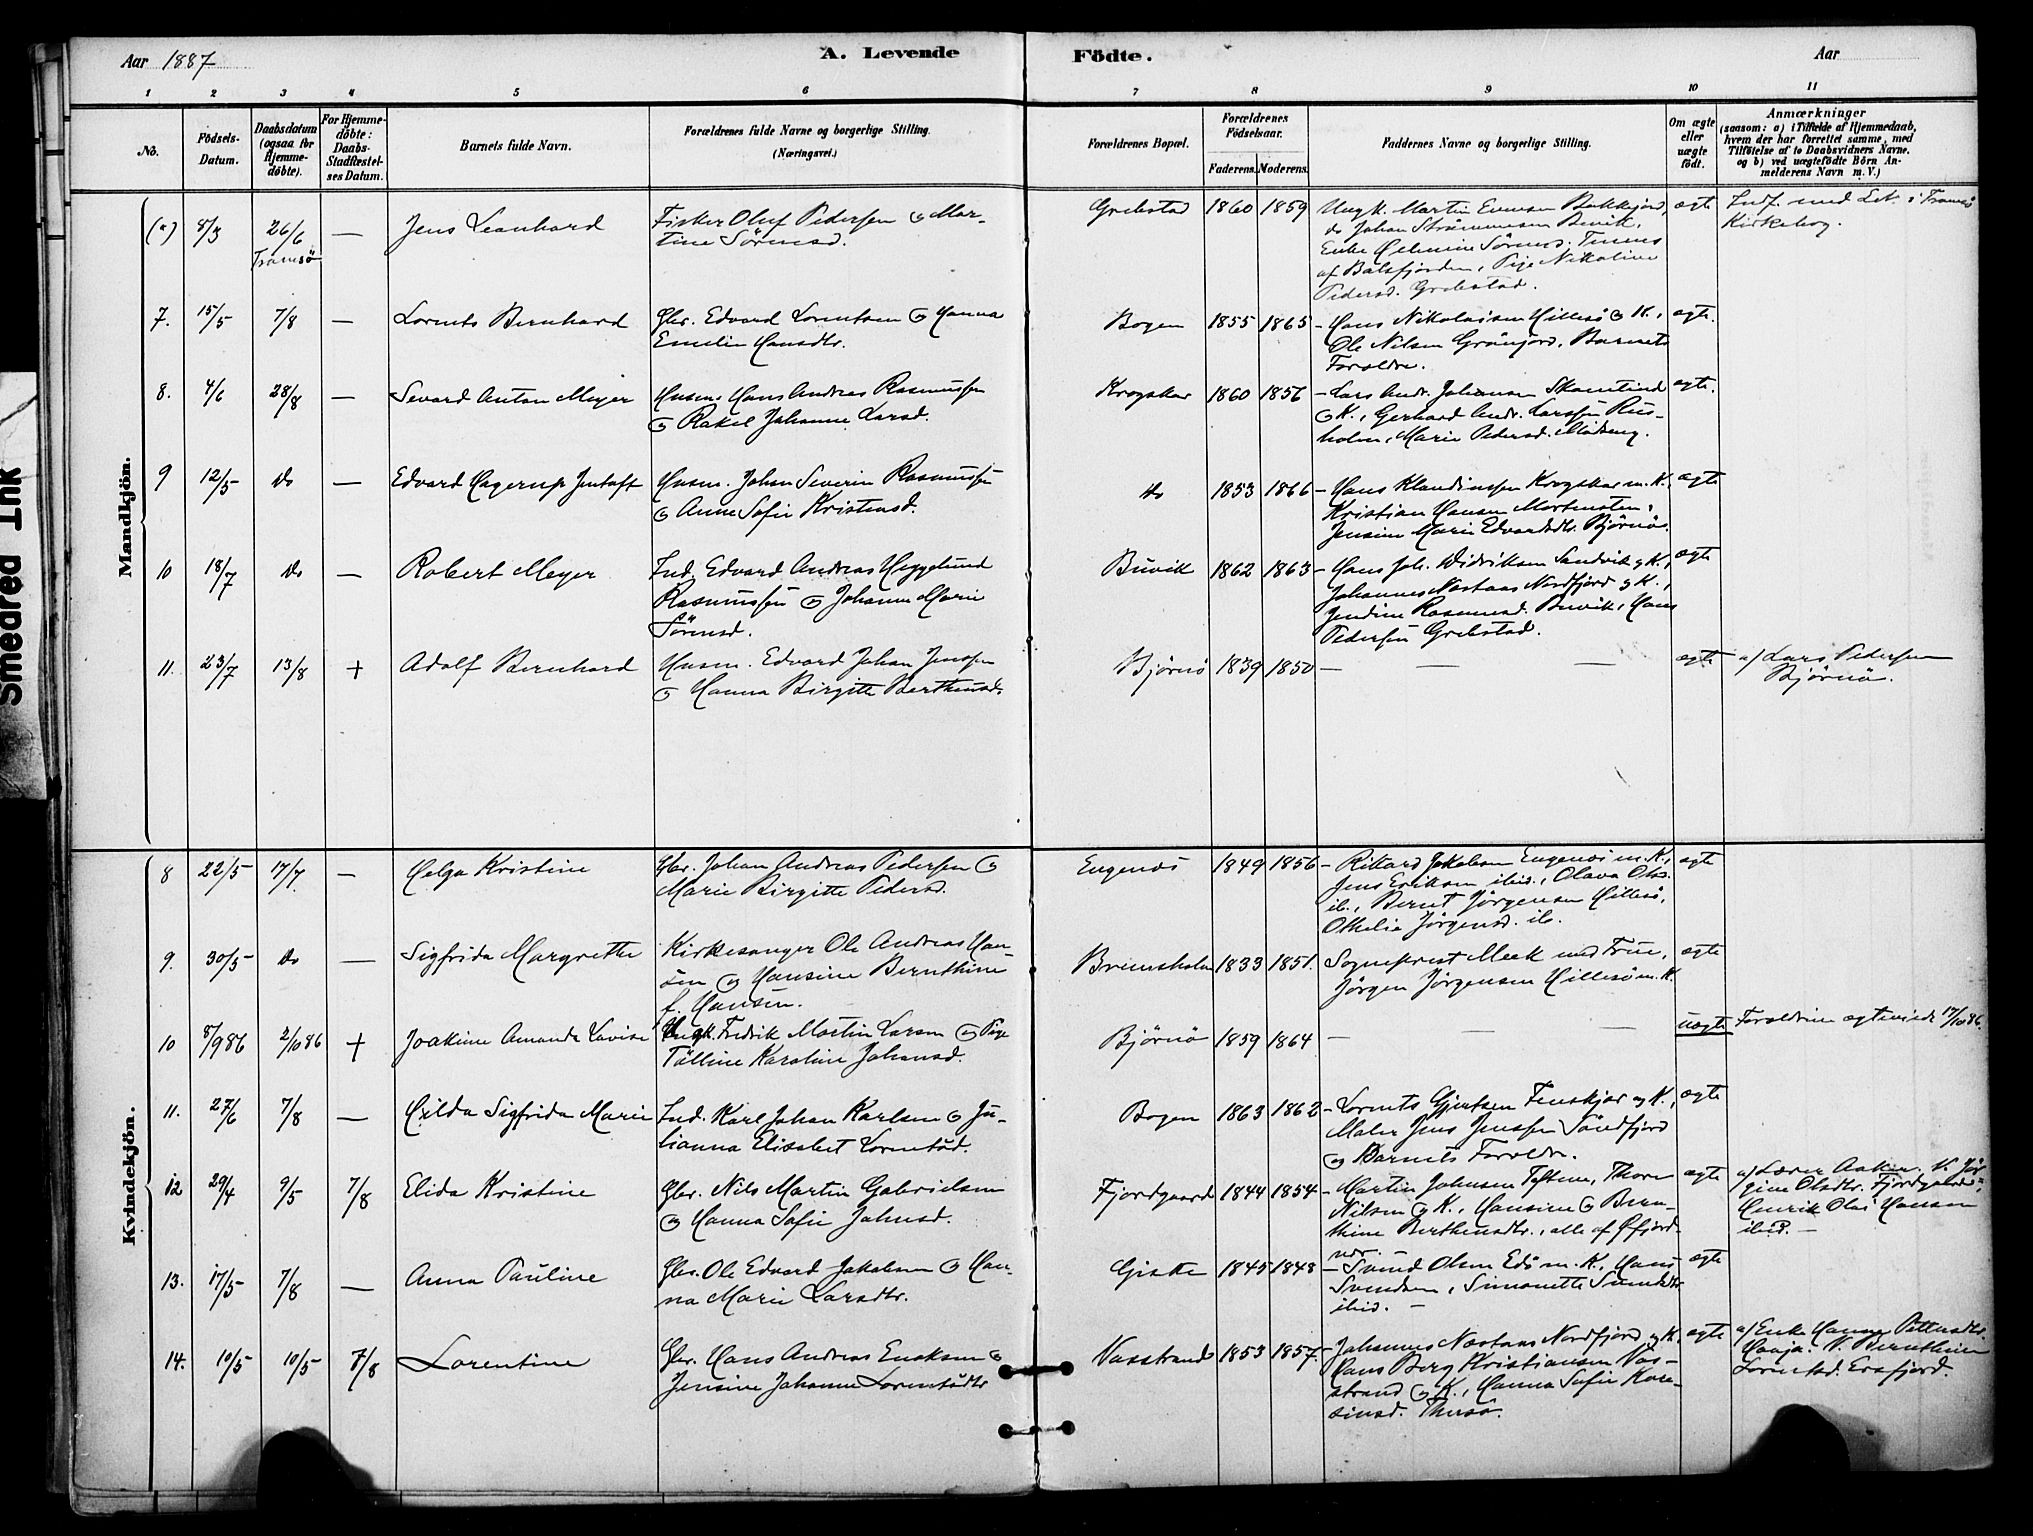 Aar 1887
A. Levende
Födte.
Aar
1 2 3 4 5 6 7 8 9 10 11
No.
Födsels-
Datum.
Daabsdatum
(ogsaa for
Hjemme-
döbte).
For Hjemme-
döbte:
Daabs-
Stadfæstel-
ses Datum.
Barnets fulde Navn.
Forældrenes fulde Navne og borgerlige Stilling.
(Næringsvei.)
Forældrenes Bopæl.
Forældrenes
Födselsaar.
Faderens. Moderens.
Faddernes Navne og borgerlige Stilling.
Om ægte
eller
uægte
födt.
Anmærkninger
(saasom: a) i Tilfælde af Hjemmedaab,
hvem der har forrettet samme, med
Tilföielse af to Daabsvidners Navne,
og b) ved uægtefödte Börn An-
melderens Navn m. V.)
Mandkjön.
8/3 26/6 — Jens Leonhard
Tromsö
Fisker Oluf Pedersen og Mar-
tine Sörensd.
Grebstad 1860 1859
Ungk. Martin Evensen Bakkejord,
do Johan Strömmesen Bervik,
Enke Sörens.
af Balsfjorden, Pige Nikoline
Pedersd. Grebstad.
ægte
Indf. med Lit. i Tromsö
Kirkebog.
7. 15/5 7/8 — Lorents Bernhard
Gbr. Edvard Lorentsen og Hanna
Emelie Hansdtr.
Bogen 1855 1865
– Hans Nikolaisen Hillesö og K.,
Ole Nilsen Grönjord, Barnets
Foroldre.
ægte.
8. 4/6 28/8 — Sevard Anton Meyer
Husm. Hans Andreas Rasmussen
og Rakel Johanne Larsd.
Krogskar 1860 1856
– Lars Andr. Johansen Skamtind
og K., Gerhard Andr. Larssen Rus-
holm, Marie Pedersd.
ægte.
9 12/5 do — Edvard Hagerup Jentoft
Husm. Johan Severin Rasmussen
og Anne Sofie Kristensd.
do 1853 1866
– Hans Klaudinssen Krogskar m. K.,
Kristian Hansen Mortensten,
Jensine Marie Edvardsdtr. Bjørnø.
ægte
10 18/7 do — Robert Meyer
Ind. Edvard Andreas Heggelund
Rasmussen og Johanne Marie
Sörensd.
Buvik 1862 1863
– Hans Joh. Didriksen Sandvik og K.,
Johannes Nastaas Nordfjord og K.,
Jendine Rasmusd. Buvik, Hans
Pedersen Grebstad.
ægte
11. 23/7 13/8 + Adolf Bernhard
Husm. Edvard Johan Jenssen
og Hanna Birgitte Berthensd.
Bjørnø 1839 1850
— — —
ægte
af Lars Pedersen
Bjørnø.
Kvindekjön.
8 22/5 17/7 — Helga Kristine
Gbr. Johan Andreas Pedersen og
Marie Birgitte Pedersd.
Engenes 1849 1856
– Rikard Jakobsen Engenes m. K.,
Jens Eriksen ibid., Olava Olsd.
ib., Bernt Jörgensen Hillesö,
Othelie Jörgensd. ib.
ægte
9. 30/5 do — Sigfrida Margrethe
Kirkesanger Ole Andreas Han-
sen og Hansine Bernthine
f. Hansen.
Brensholm 1833 1851.
Sogneprest Meek med Frue,
Jörgen Jörgensen Hillesö m. K.
ægte
10 8/9 86 2/10 86 + Joakime Amanda Lovise
Ungk. Fredrik Martin Larsen og Pige
Tölline Karoline Johansd.
Bjørnø 1859 1864
— — —
uægte
Foroldrene ægteviede 17/10 86.
11. 27/6 7/8 — Hilda Sigfrida Marie
Ind. Karl Johan Karlsen og Ju-
lianna Elisabet Lorentsd.
Bogen 1863 1862
– Lorents Gjertsen Finskjær og K.,
Maler Jens Jenssen Sandfjord
og Barnets Foroldre.
ægte
12 29/4 9/5 7/8 Elida Kristine
Gbr. Nils Martin Gabrielsen
og Hanna Sofie Johnsd.
Fjordgaard 1844 1854
– Martin Johnsen Teften, Thore
Nilsen og K., Hansine og Bern-
thine Berthensdtr., alle af Øfjord-
ner.
ægte
af Lærer Aaker, V. Jör-
gine Olsdtr. Fjordgaard,
Henrik Olai Hansen
ibid. –
13. 17/5 7/8 — Anna Pauline
Gbr. Ole Edvard Jakobsen og Han-
na Marie Larsdtr.
Giske 1845 1848
– Svend Olsen Edö m. K., Hans
Svendsen, Simonette Svendsdtr.
ibid. –
ægte
14. 10/5 10/5 7/8 Lorentine
Gbr. Hans Andreas Enoksen og
Jensine Johanne Lorentsdtr.
Vasstrand 1853 1857.
– Johannes Nastaas Nordfjord og K.
Hans Berg Kristiansen Vas-
strand og K., Hanna Sofie
Thersö.
ægte
af Enke Hanna Pettersdtr.
Haaja. V. Bernthine
Lorentsd. Ersfjord.
Smeared Ink